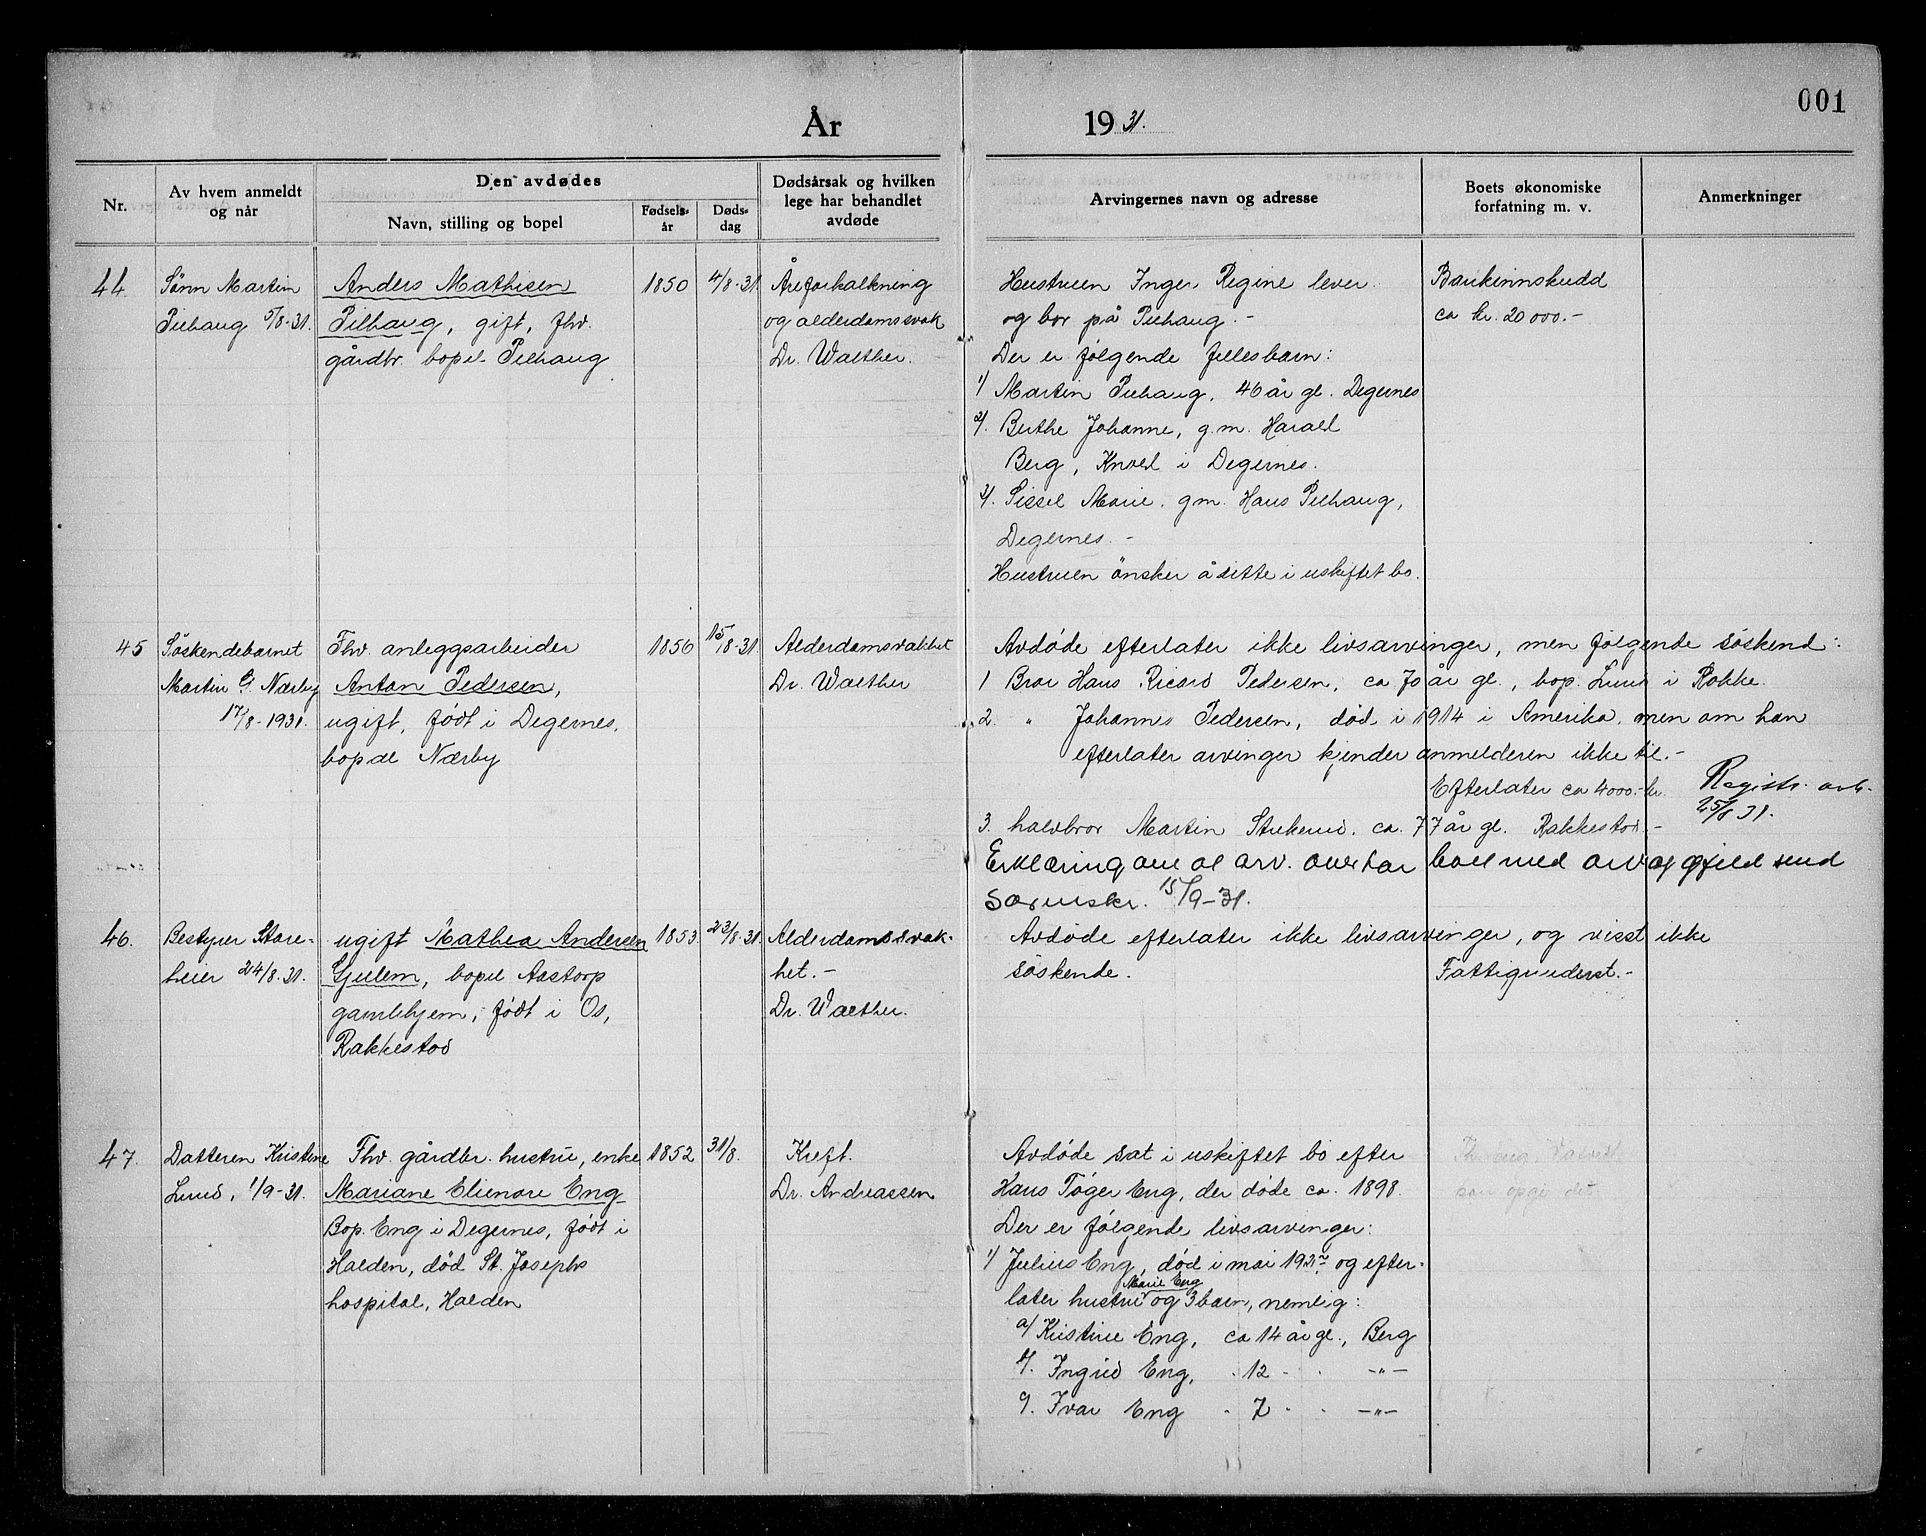 001
År 1931.
Nr.
Av hvem anmeldt
og når
Den avdødes
Navn, stilling og bopel
Fødsels-
år
Døds-
dag
Dødsårsak og hvilken
lege har behandlet
avdøde
Arvingernes navn og adresse
Boets økonomiske
forfatning m. v.
Anmerkninger
44.
Sønn Martin
Pilhaug 5/8-31.
Anders Mathisen
Pilhaug, gift, fhv.
gårdbr. bopel Pilhaug
1850
4/8-31.
Åreforkalkning
og alderdomssvak
Dr. Walther.
Hustruen Inger Regine lever
og bor på Pilhaug.-
Der er følgende fellesbarn:
1/ Martin Pilhaug, 46 år gl. Degernes
2/. Berthe Johanne, g.m. Harald
Berg, Knoll i Degernes.
3/. Sissel Marie, g.m. Hans Pilhaug,
Degernes.-
Hustruen ønsker å sitte i uskiftet bo.
Bankinnskudd
ca kr. 20 000.-
45
Søskendebarnet
Martin G. Nærby
17/8-1931.
Fhv. anleggsarbeider
Anton Pedersen,
ugift, født i Degernes,
bopel Nærby
1856
15/8-31.
Alderdomsvakhet
Dr. Walther
Avdøde efterlater ikke livsarvinger, men følgende søskend:
1 Bror Hans Ricard Pedersen, ca 70 år gl., bop. Lund i Rokke.
2. " Johannes Pedersen, død i 1914 i Amerika, men om han
efterlater arvinger kjender anmelderen ikke til.-
Efterlater ca 4000.- kr.
Registr. avh.
25/8 31.
3. halvbror Martin Strekerud, ca. 77 år gl. Rakkestad.-
Erklæring om at arv. overtar boet med arv og gjeld send
Sorenskr. 15/9-31.
46.
Bestyrer Store-
heier 24/8.31.
ugift Mathea Andersen
Gjulem, bopel Aastorp
gamlehjem, født i Os,
Rakkestad
1853
23/8.31.
Alderdomssvak-
het.-
Dr. Walther.
Avdøde efterlater ikke livsarvinger, og visst ikke
søskende.
Fattigunderst.-
47.
Datteren Kristine
Lund, 1/9-31.
Fhv. gårdbr. hustru, enke
Mariane Elienore Eng
Bop. Eng i Degernes, født i
Halden, død St. Josephs
hospital, Halden
1852
31/8.
Kreft.
Dr. Andreassen
Avdøde sat i uskiftet bo efter
Hans Tøger Eng, der døde ca. 1898.
Der er følgende livsarvinger:
1/ Julius Eng, død i mai 1931 og efter-
Marie Eng
later hustru og 3 barn, nemlig:
a/ Kristine Eng, ca 14 år gl., Berg
b/. Ingrid Eng, " 12 " " -"-
c/. Ivar Eng " 7 " " -"-
kan opgi det